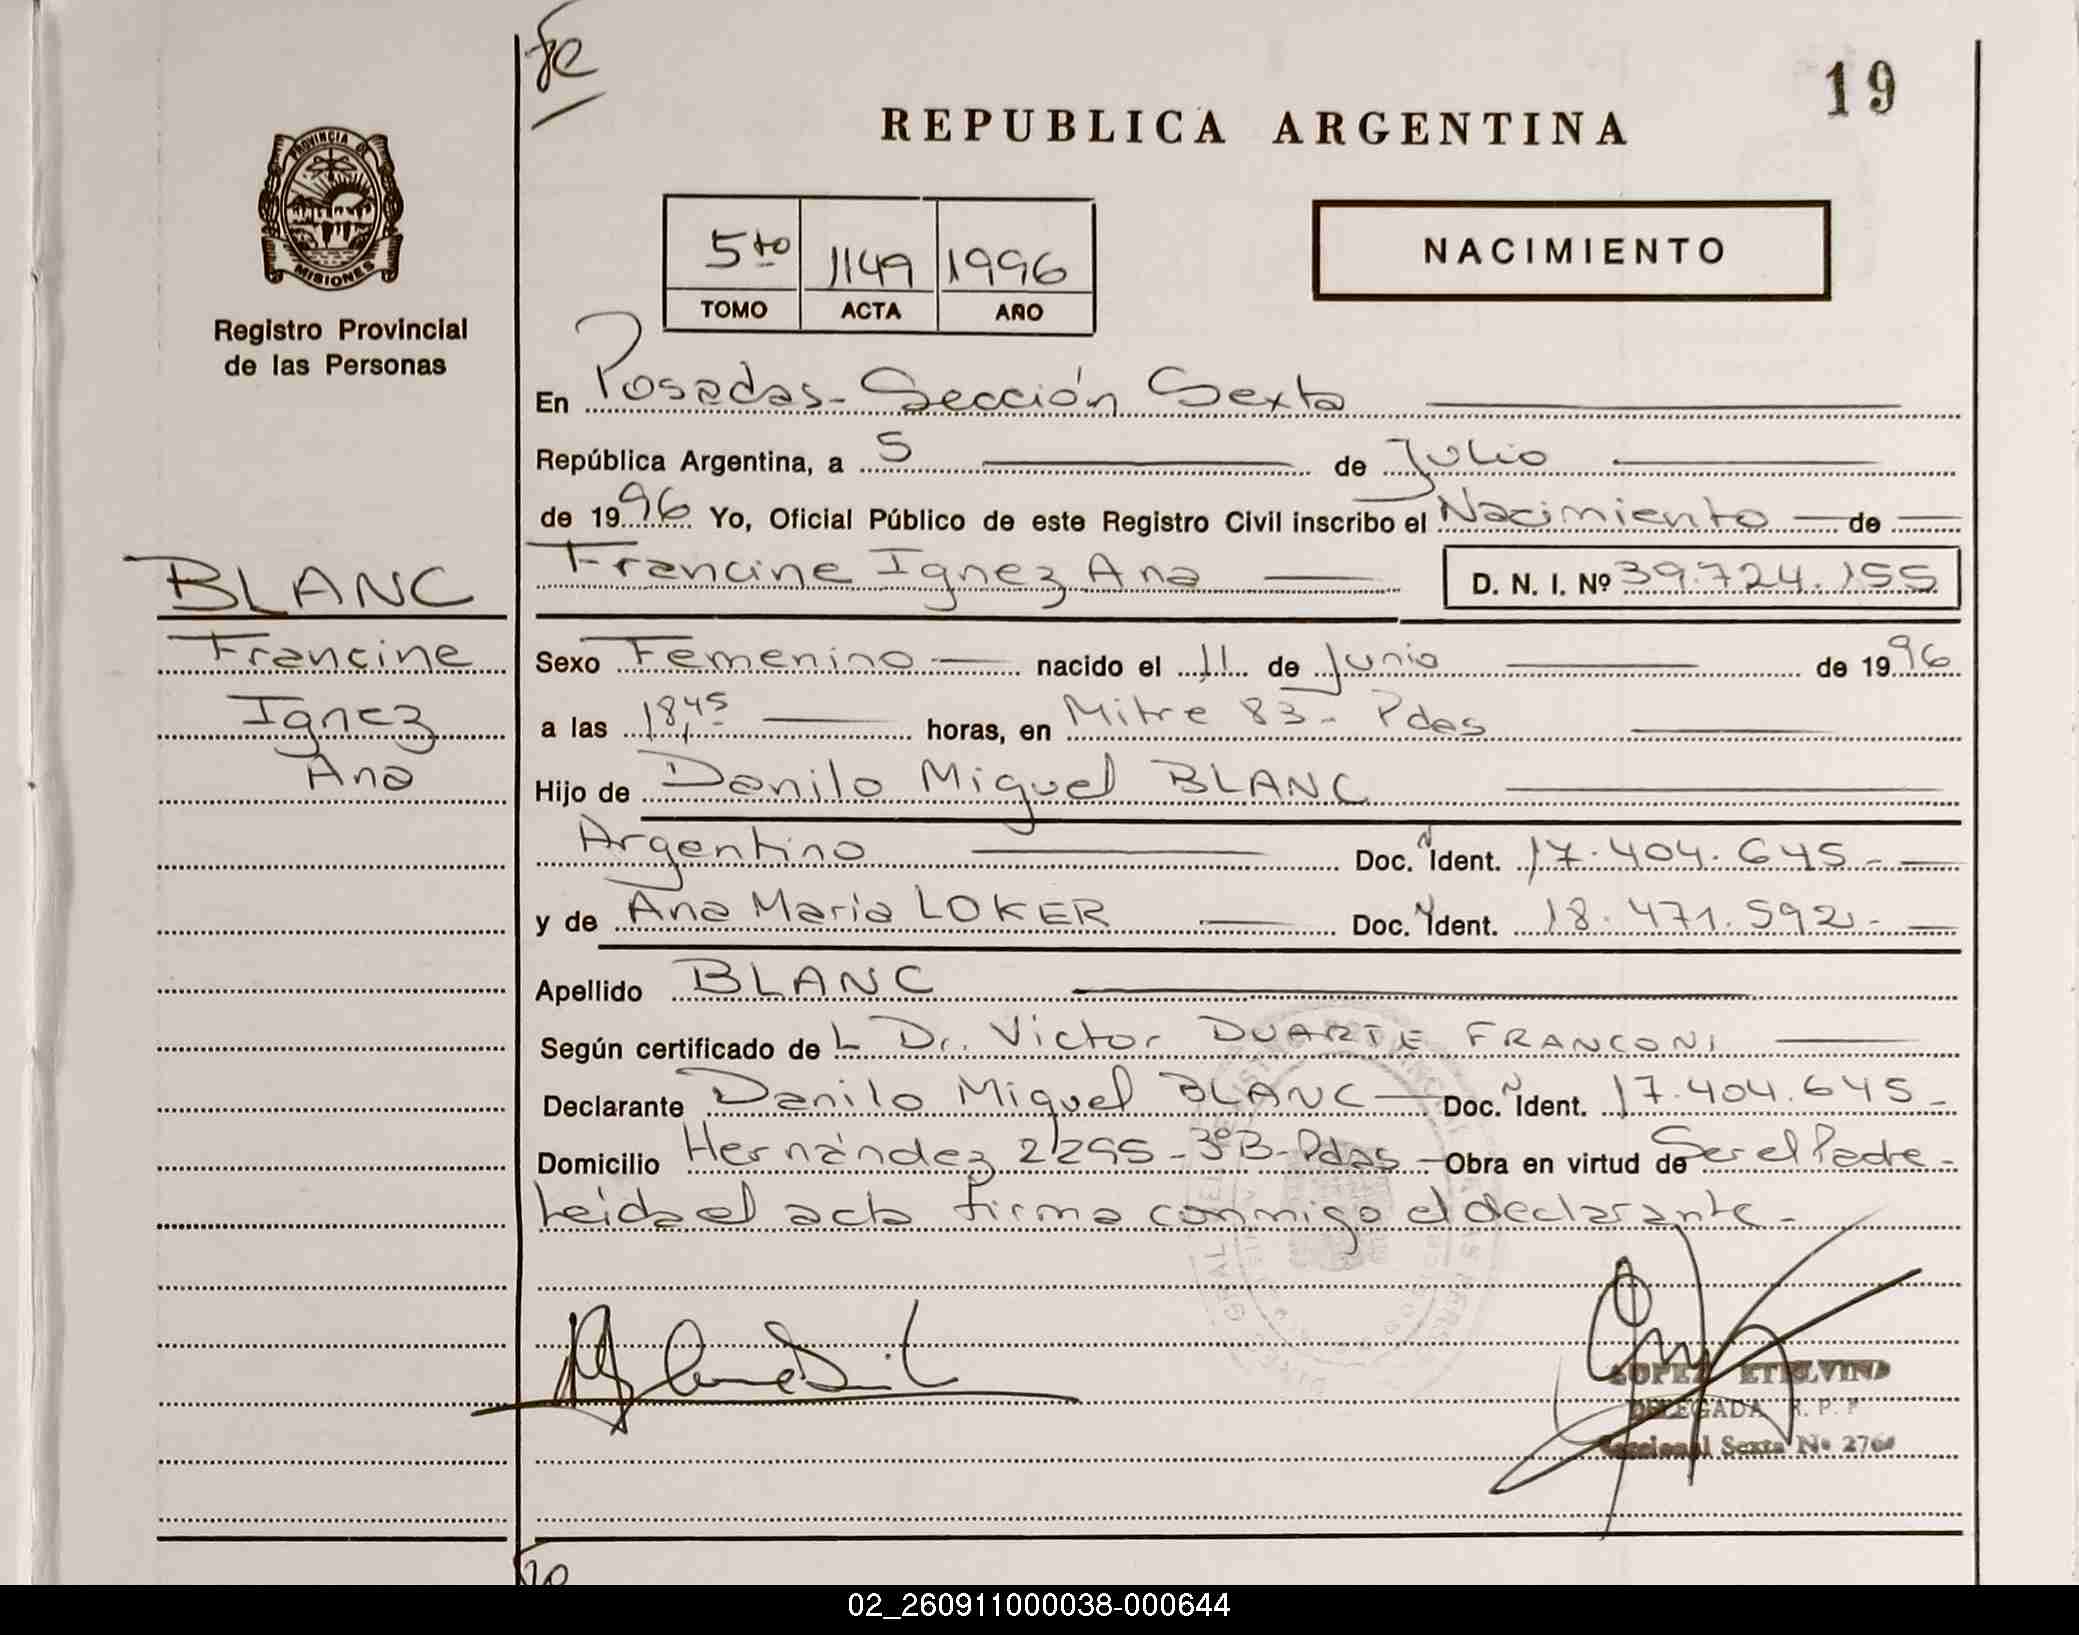 fe
19
REPUBLICA ARGENTINA
PROVINCIA DE
MISIONES
Registro Provincial
de las Personas
5to 1149 1996
TOMO ACTA AÑO
NACIMIENTO
En Posadas - Sección Sexta
República Argentina, a 5 de Julio
de 1996 Yo, Oficial Público de este Registro Civil inscribo el Nacimiento de
Francine Ignez Ana D. N. I. Nº 39.724.155
BLANC
Francine
Ignez
Ana
Sexo Femenino nacido el 11 de Junio de 1996
a las 18,45 horas, en Mitre 83 - Pdas
Hijo de Danilo Miguel BLANC
Argentino Doc. Ident. 17.404.645.-
y de Ana Maria LOKER Doc. Ident. 18.471.592.-
Apellido BLANC
Según certificado de L Dr. Victor DUARTE FRANCONI
Declarante Danilo Miguel BLANC Doc. Ident. 17.404.645.-
Domicilio Hernández 2295 - 3º B - Pdas Obra en virtud de Ser el Padre -
Leida el acta firma conmigo el declarante.-
LOPEZ ETELVINA
DELEGADA R. P. P
Seccional Sexta Nº 276
02_260911000038-000644